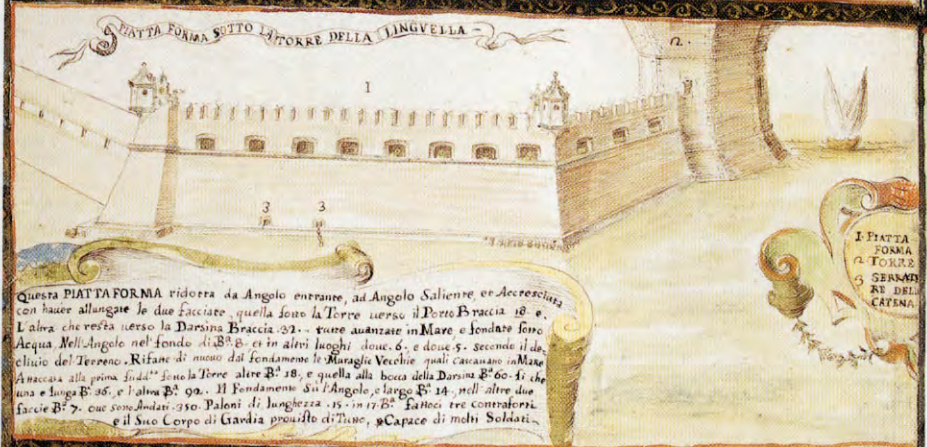 PIATTA FORMA SOTTO LA TORRE DELLA LINGVELLA
1
2.
3 3
1. PIATTA
FORMA
2 TORRE
3 SERRATU
RE DELL
CATENA
Questa PIATTA FORMA ridotta da Angolo entrante, ad Angolo Saliente, et Accresciuta
con hauer allungate le due facciate, quella sotto la Torre uerso il Porto Braccia 18. e
L'altra che resta uerso la Darsina Braccia 32. tutte auanzate in Mare e fondate sotto
Acqua. Nell'Angolo nel fondo di B.a 8. et in altri luoghi doue 6. e doue 5. secondo il de
cliuio del Terreno. Rifatte di nuouo dal fondamento le Muraglie Vecchie quali cascauano in Mare
Attaccata alla prima sudd.a sotto la Torre altre B.a 18, e quella alla bocca della Darsina B.a 60. si che
una e lunga B. 36, e l'altra B.a 92. Il Fondamento Sù l'Angolo, e largo B.a 14, nell'altre due
faccie B.a 7. oue sono Andati 350. Paloni di lunghezza 15. in 17. B.a fattoci tre contraforti
e il Suo Corpo di Gardia prouisto di Tutto, e Capace di molti Soldati